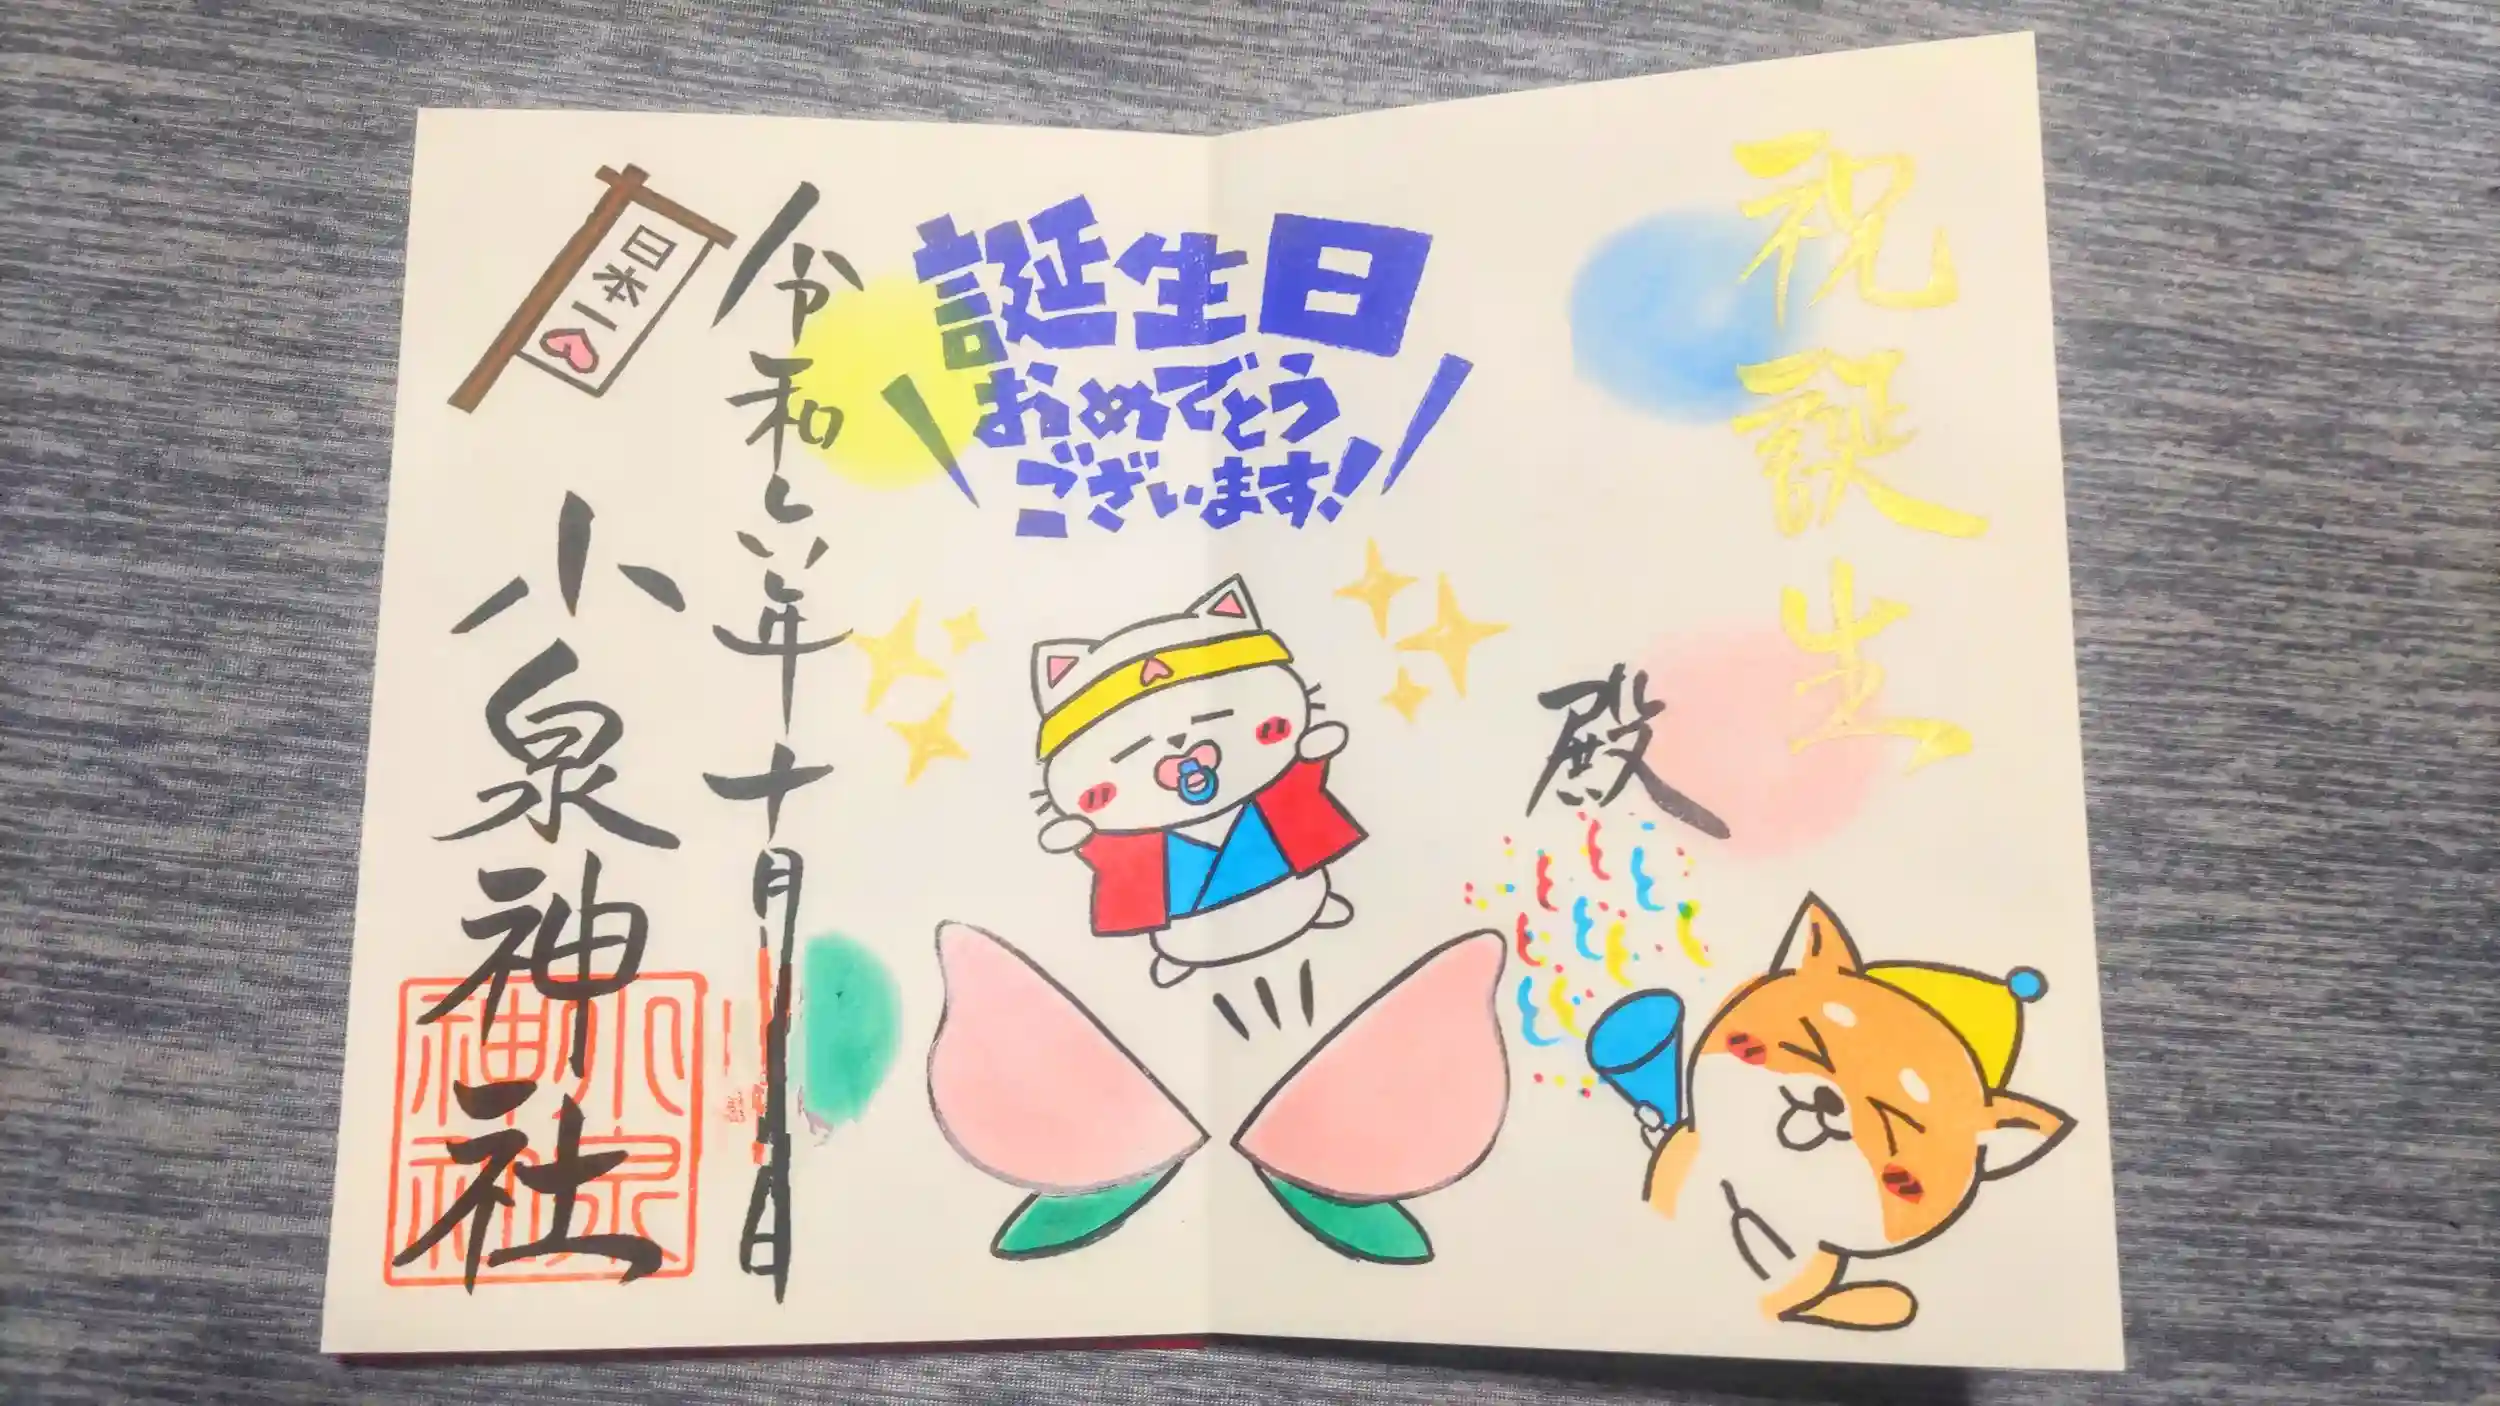 祝誕生
殿
誕生日
おめでとう
ございます!
令和六年十月 日
日本一
小泉神社
小泉神社